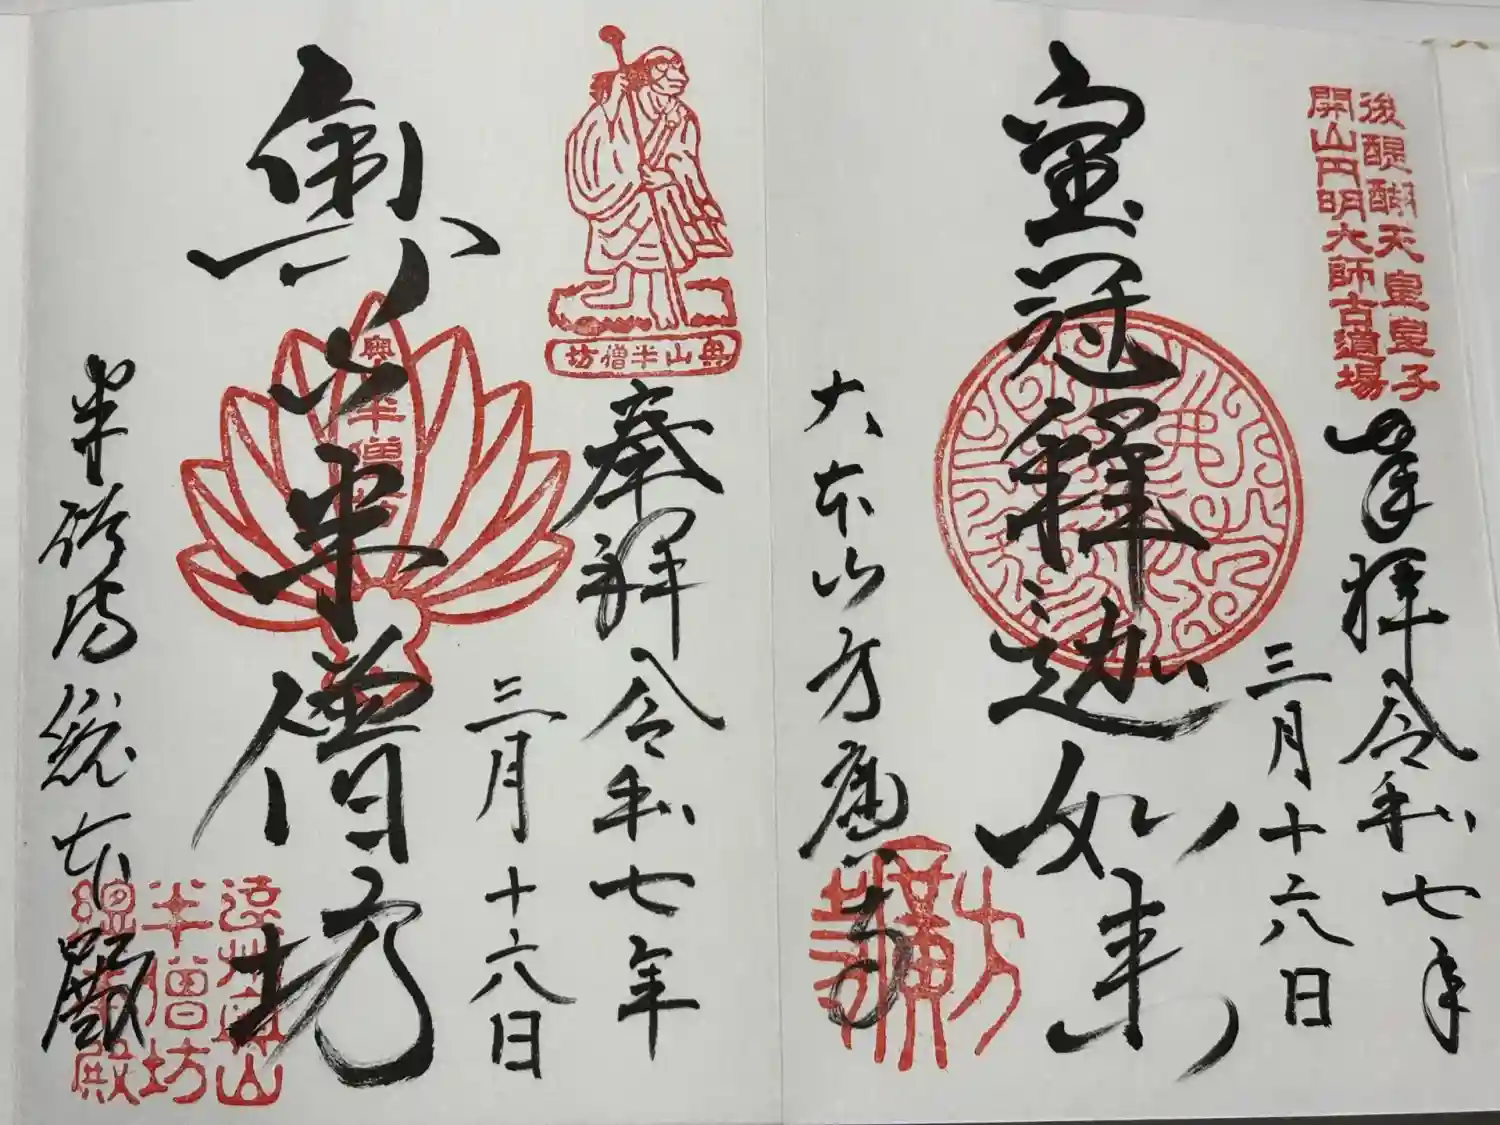 後醍醐天皇皇子
開山円明大師古道場
奉拝 令和七年
三月十六日
宝冠釋迦如来
大本山方廣寺
方廣寺
奥山半僧坊
奉拝 令和七年
三月十六日
奥山半僧坊
半僧坊総本殿
奥山
半僧坊